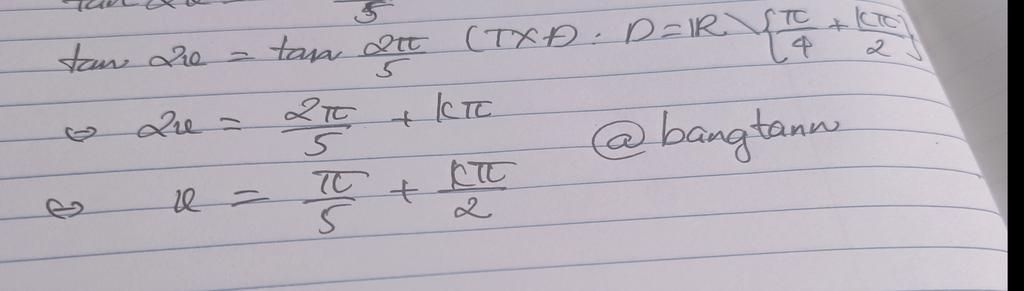 tan 2x = tan 2π/5 (TXĐ: D = ℝ \ {π/4 + kπ/2}
⇔ 2x = 2π/5 + kπ
@bangtann
⇔ x = π/5 + kπ/2